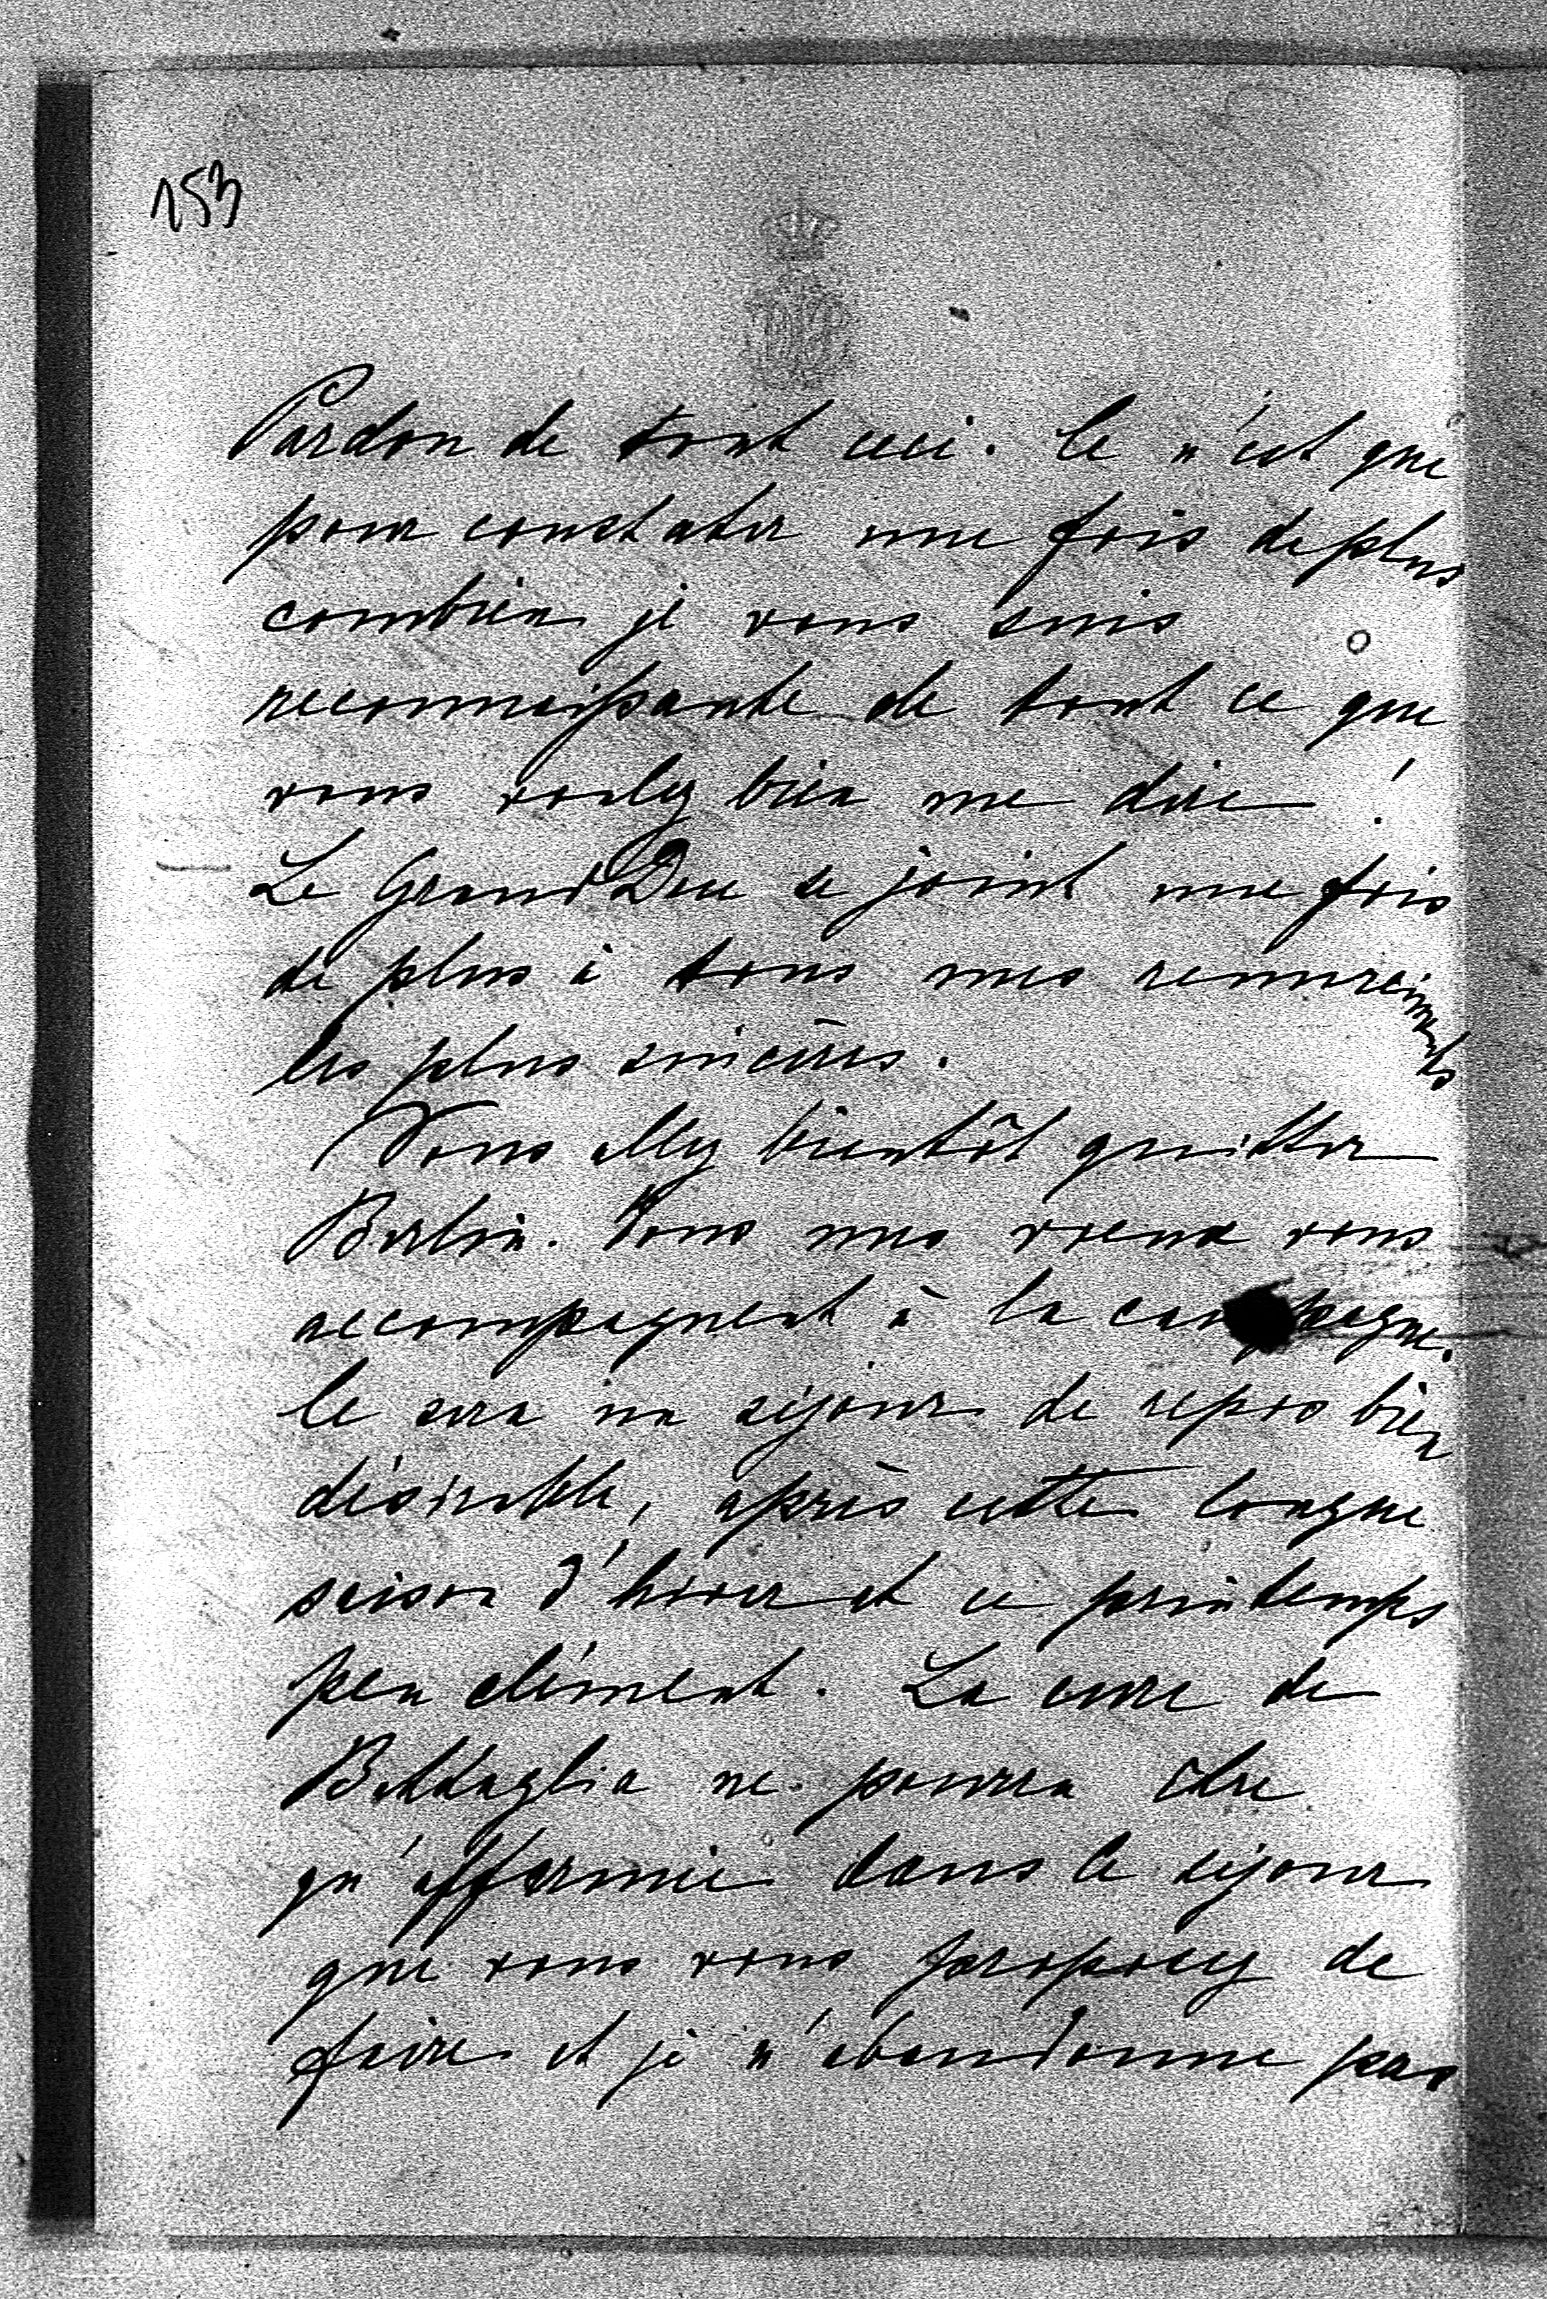 153
Pardon de tout ceci. Ce n'est que
pour constater une fois de plus
combien je vous suis
reconnaissante de tout ce que
vous voulez bien me dire !
Le Grand Duc se joint une fois
de plus à tous mes remerciments
les plus sincères.
Vous allez bientôt quitter
Berlin. Tous mes voeux vous
accompagnent à la campagne.
Ce sera un séjour de repos bien
désirable, après cette longue
saison d'hiver et ce printemps
peu clément. La cure de
Battaglia ne pourra être
qu'affermie dans le séjour
que vous vous proposez de
faire et je n'abandonne pas